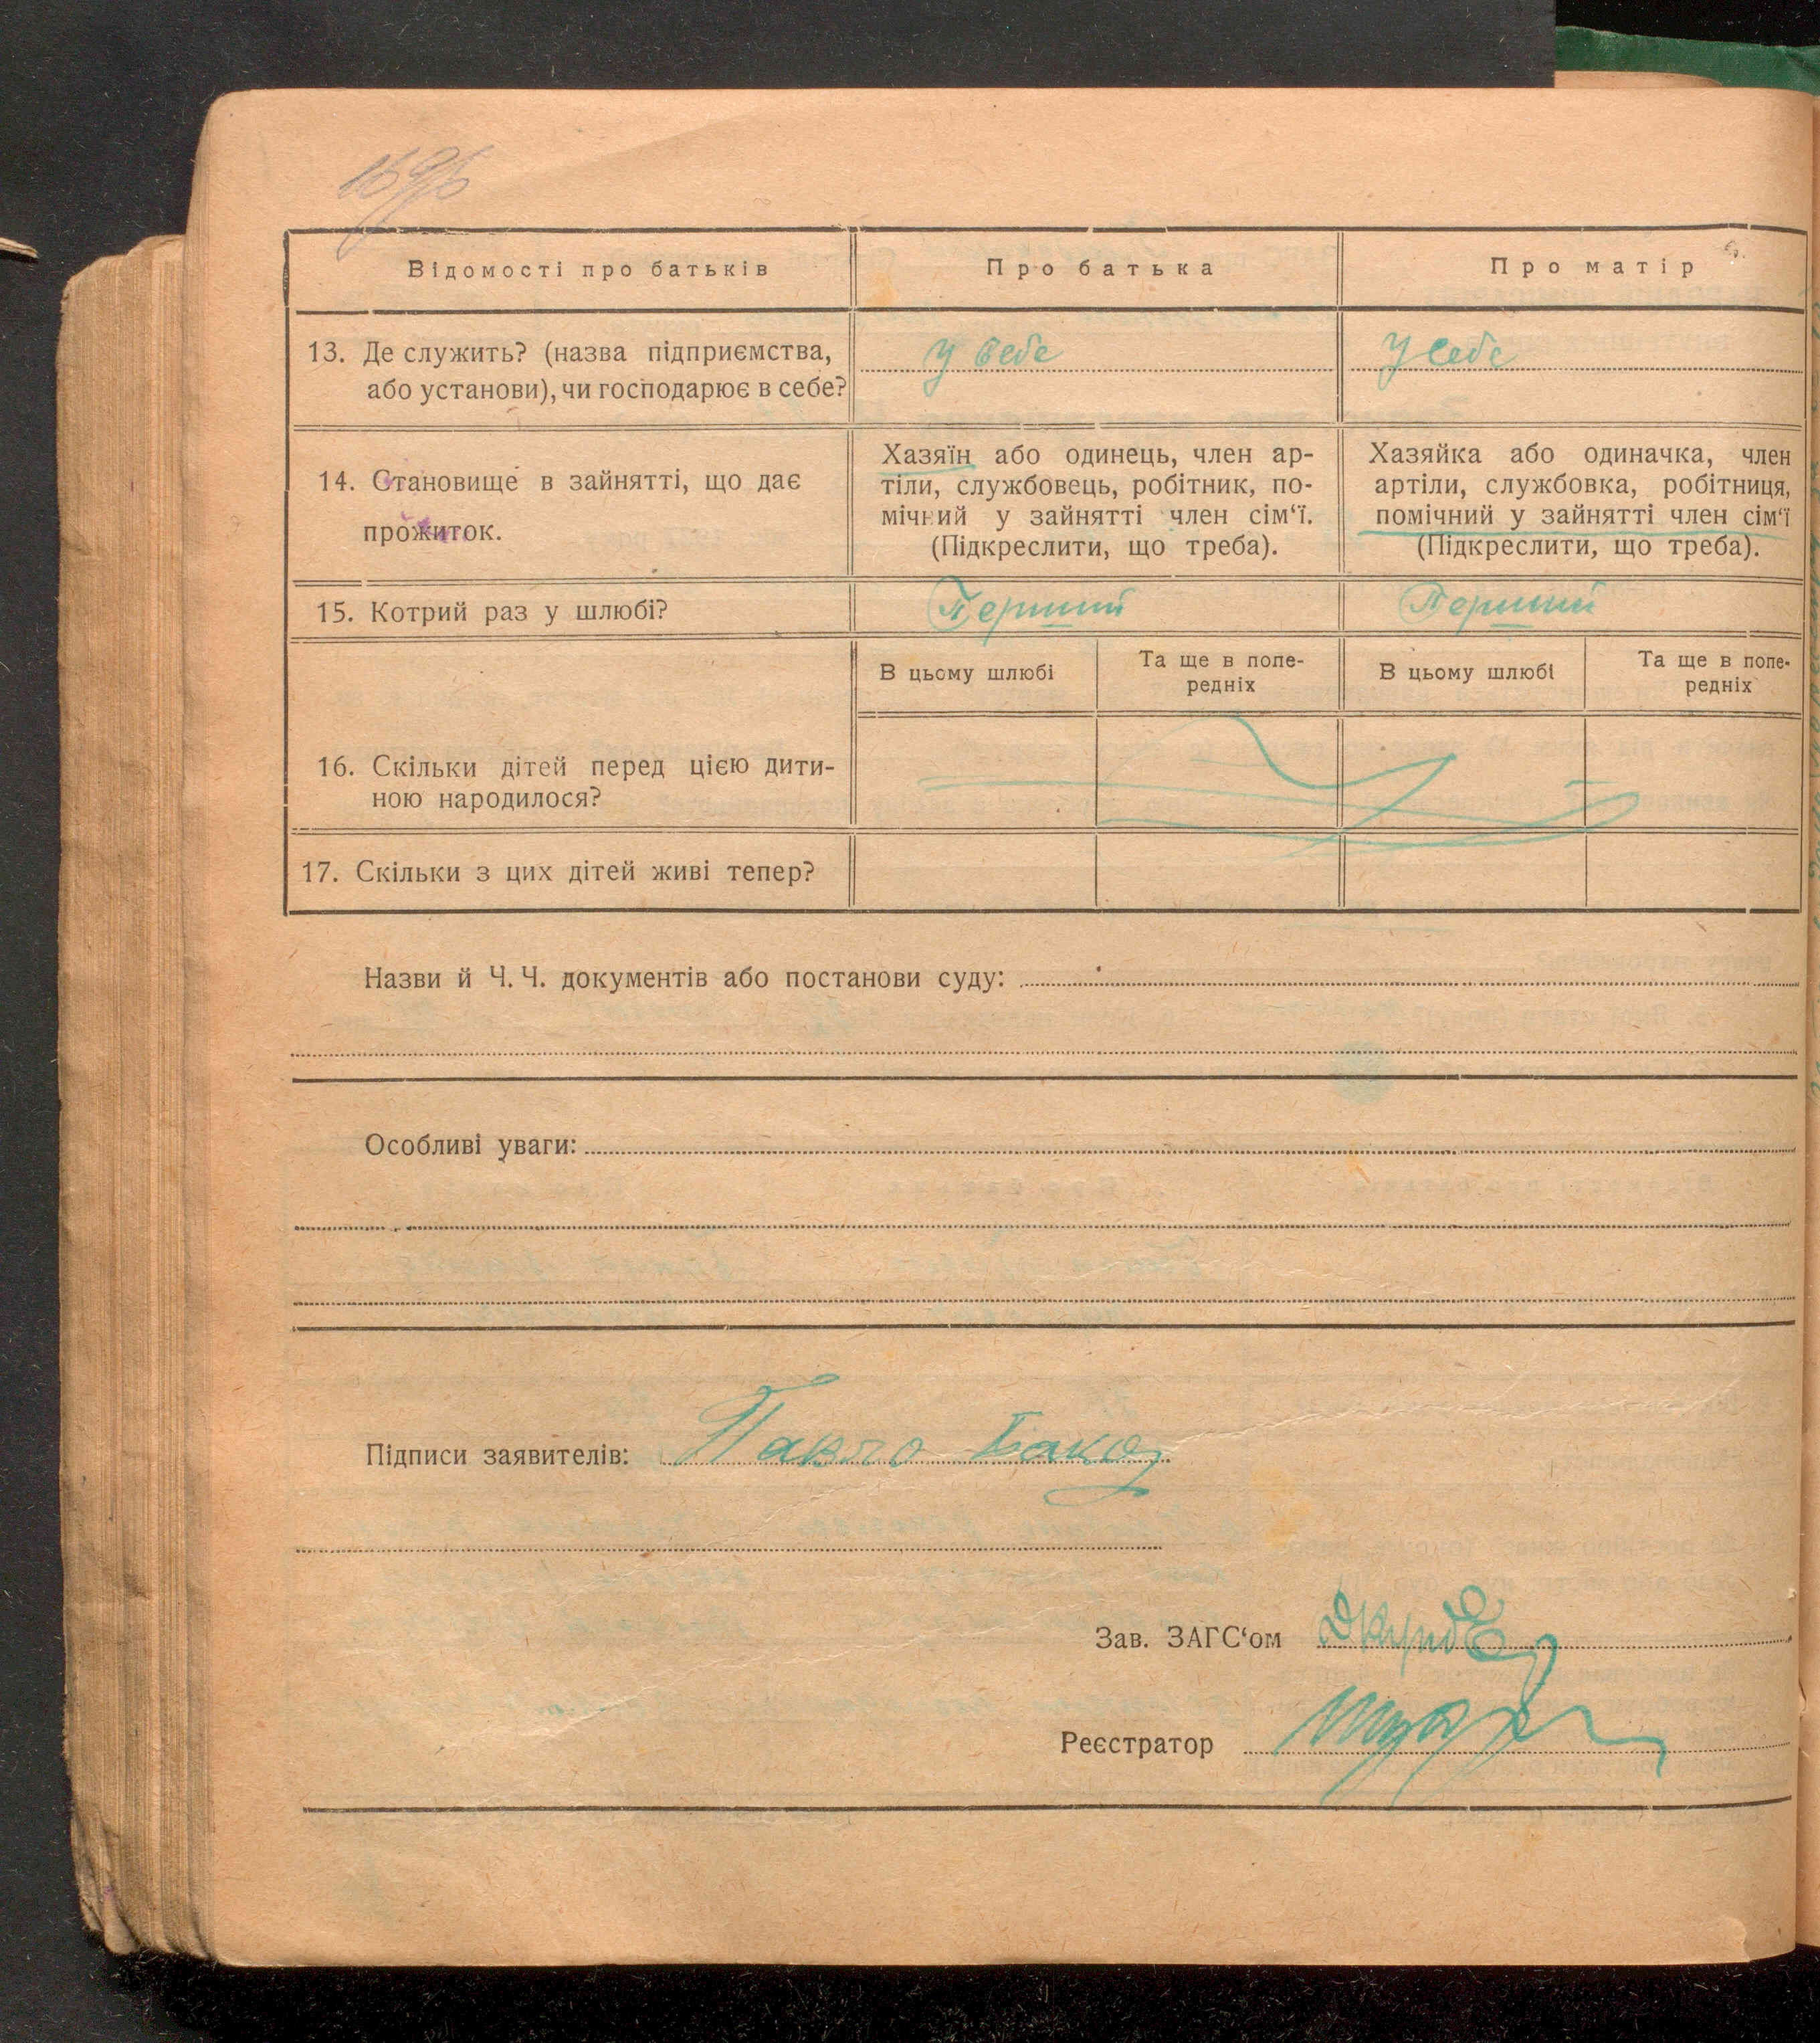 Відомості про батьків
Про батька
Про матір
13. Де служить? (назва підприємства,
або установи), чи господарює в себе?
у себе
у себе
14. Становище в зайнятті, що дає
прожиток.
Хазяїн або одинець, член ар-
тіли, службовець, робітник, по-
мічний у зайнятті член сім‘ї.
(Підкреслити, що треба).
Хазяйка або одиначка, член
артіли, службовка, робітниця,
помічний у зайнятті член сім‘ї
(Підкреслити, що треба).
15. Котрий раз у шлюбі?
Перший
Перший
В цьому шлюбі
Та ще в попе-
редніх
В цьому шлюбі
Та ще в попе-
редніх
16. Скільки дітей перед цією дити-
ною народилося?
17. Скільки з цих дітей живі тепер?
Назви й Ч. Ч. документів або постанови суду:
Особливі уваги:
Підписи заявителів: Павло
Зав. ЗАГС‘ом
Реєстратор